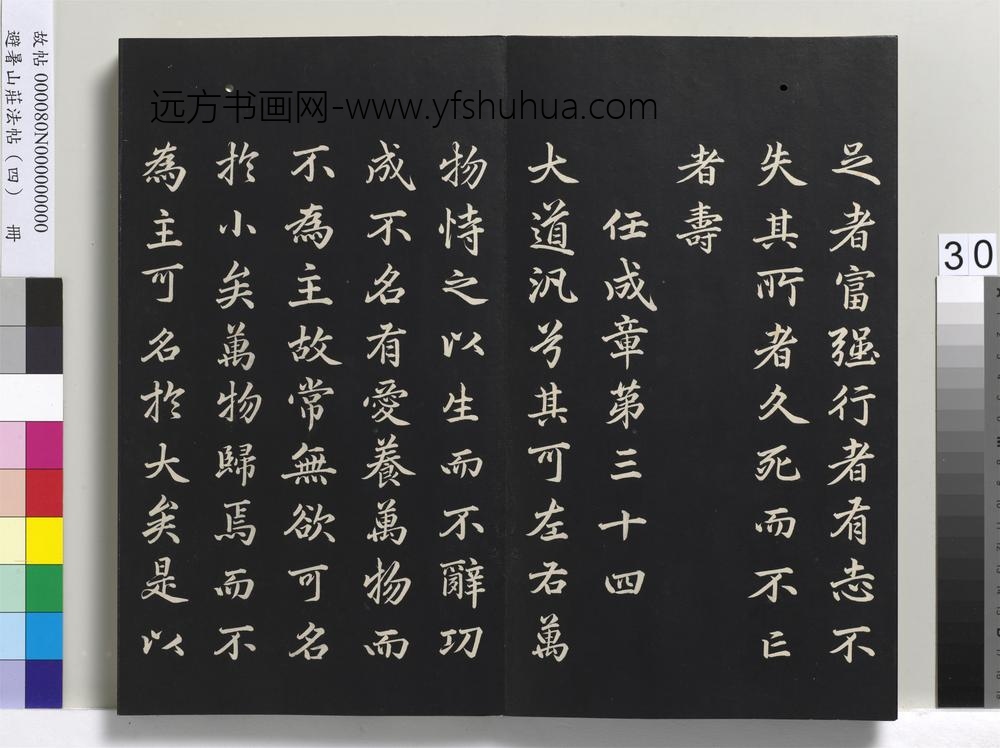 足者富强行者有志不
失其所者久死而不亡
者壽
任成章第三十四
大道汎兮其可左右萬
物恃之以生而不辭功
成不名有愛養萬物而
不為主故常無欲可名
於小矣萬物歸焉而不
為主可名於大矣是以
远方书画网-www.yfshuhua.com
故帖 000080N000000000
避暑山莊法帖（四） 冊
30